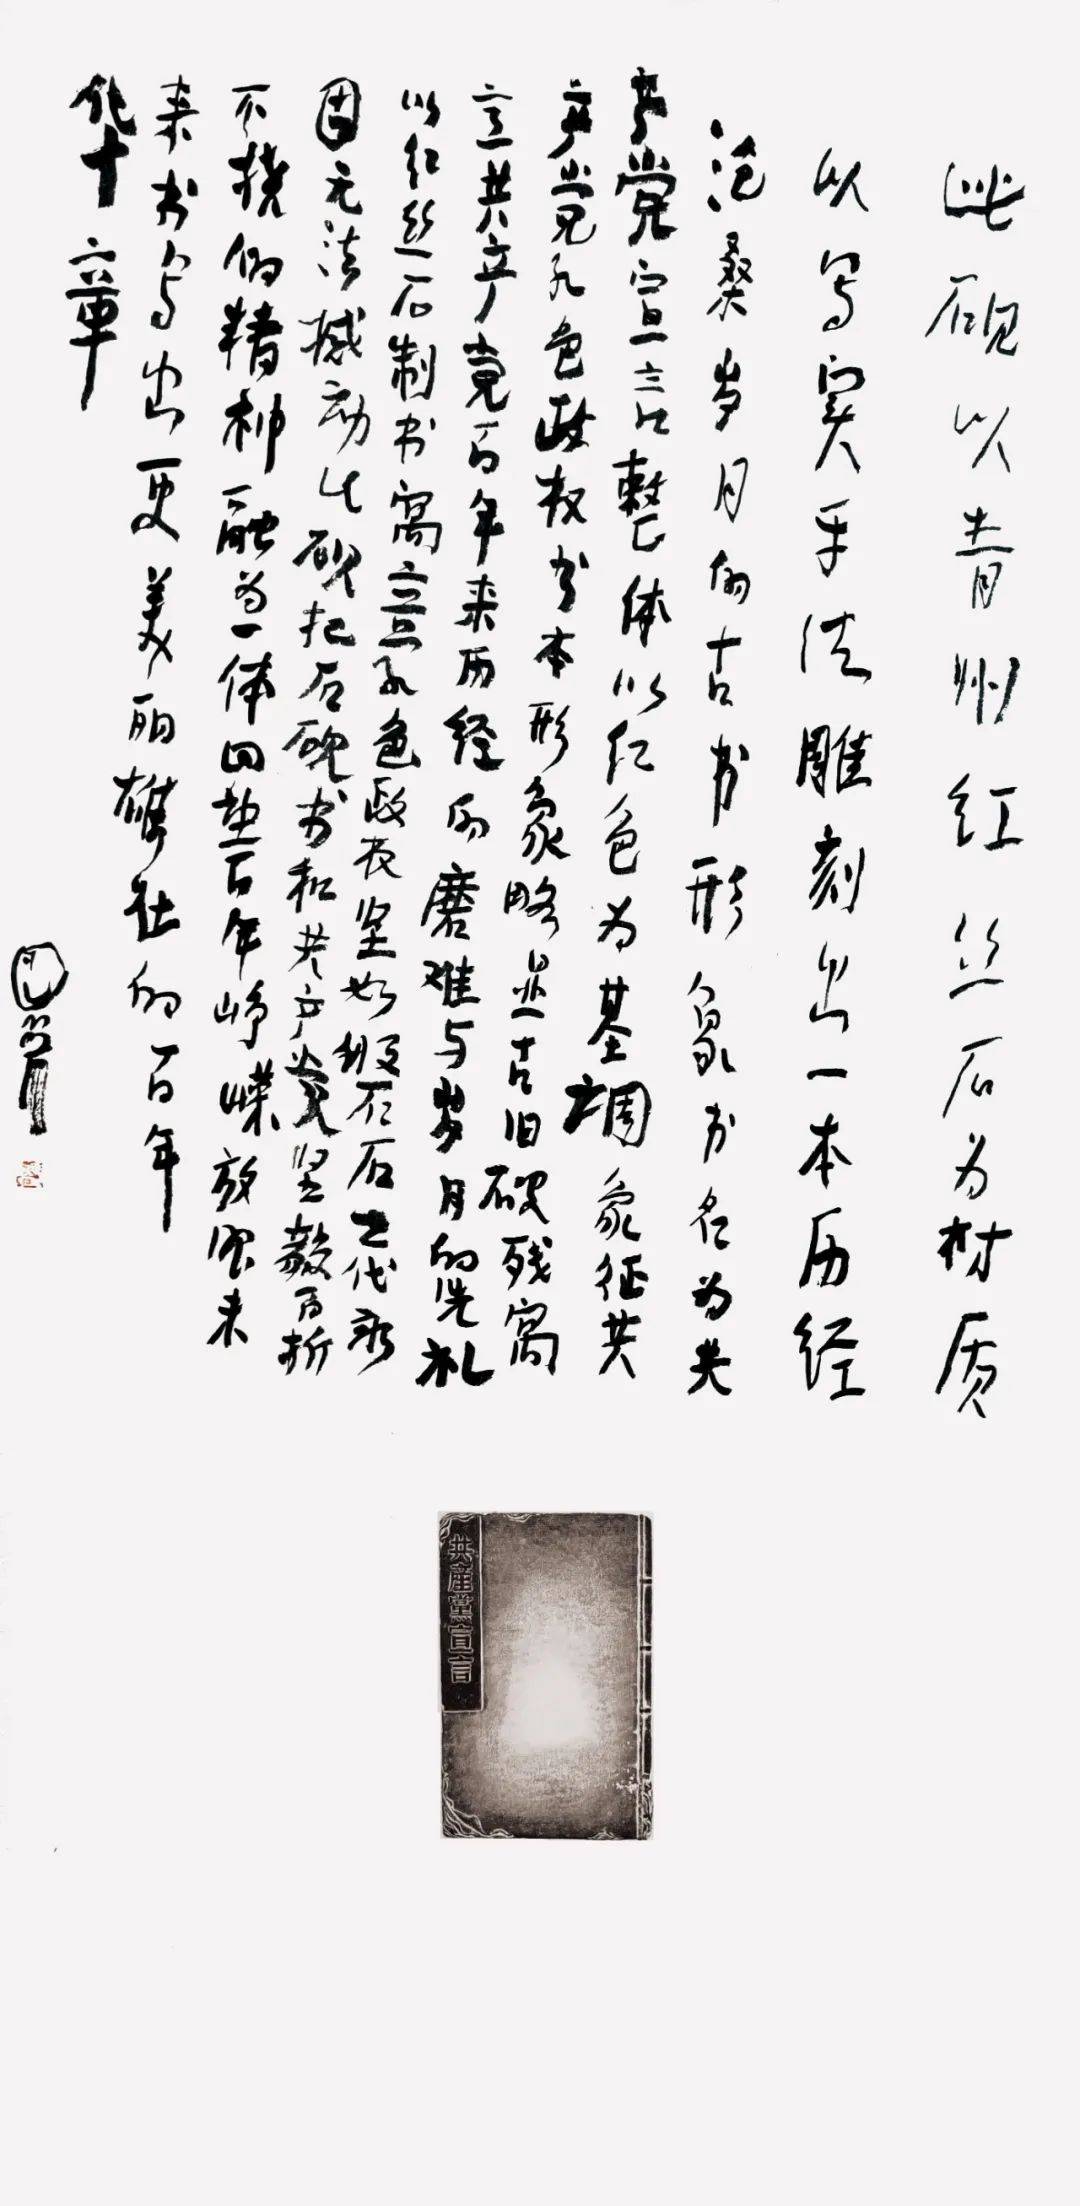 此砚以青州红丝石为材质
以写实手法雕刻出一本历经
沧桑岁月的古书形象书名为共
产党宣言整体以红色为基调象征共
产党红色政权书本形象略显古旧破残寓
意共产党百年来历经的磨难与岁月的洗礼
以红丝石制书寓意红色政权坚如磐石石代永
固无法撼动此砚把石砚书和共产党坚毅百折
不挠的精神融为一体回垫百年峥嵘放眼未
来书写出更美丽雄壮的百年
华章
共產黨宣言